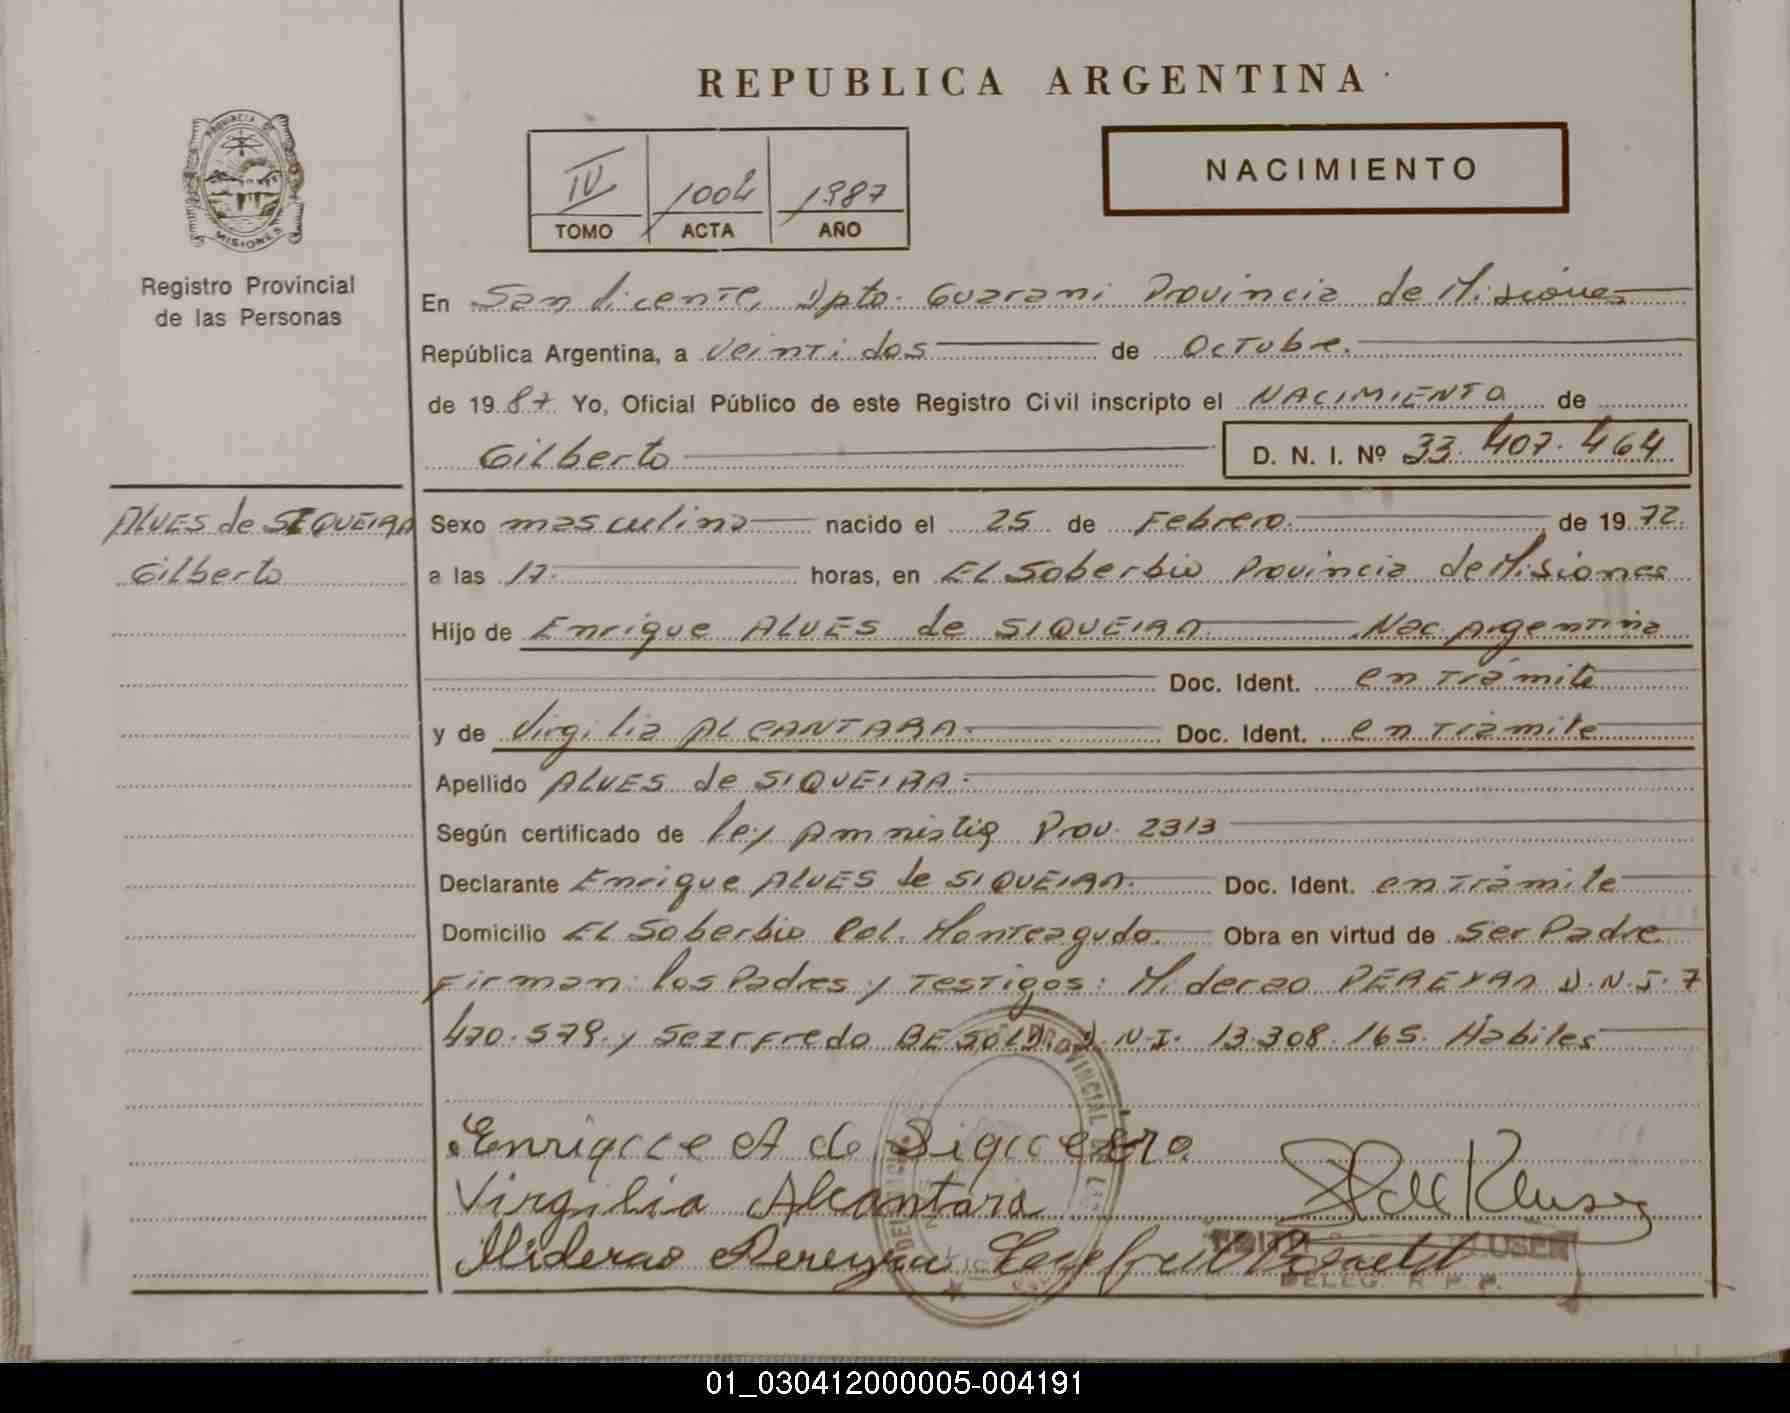 REPUBLICA ARGENTINA
PROVINCIA DE
MISIONES
Registro Provincial
de las Personas
IV 1004 1987
TOMO ACTA AÑO
NACIMIENTO
En San Vicente, Dpto. Guarani Provincia de Misiones
República Argentina, a veintidos de Octubre.
de 1987 Yo, Oficial Público de este Registro Civil inscripto el NACIMIENTO de
Gilberto D. N. I. Nº 33.407.464
ALVES de SIQUEIRA
Gilberto
Sexo masculino nacido el 25 de Febrero de 1972.
a las 17. horas, en EL Soberbio Provincia de Misiones
Hijo de Enrique ALVES de SIQUEIRA Nac. Argentina
Doc. Ident. en Trámite
y de Virgilia ALCANTARA Doc. Ident. en Trámite
Apellido ALVES de SIQUEIRA.
Según certificado de Ley Amnistia Prov. 2313
Declarante Enrique ALVES de SIQUEIRA. Doc. Ident. en Trámite
Domicilio EL Soberbio Col. Monteagudo. Obra en virtud de Ser Padre
Firman: los Padres y Testigos: Miderao PEREYRA D.N.I. 7
470.579. y Sezrfredo D.N.I. 13.308.165. Hábiles
Enrique A de Siqueira
Virgilia Alcantara
Miderao Pereyra
DELEG. R. P. P.
01_030412000005-004191